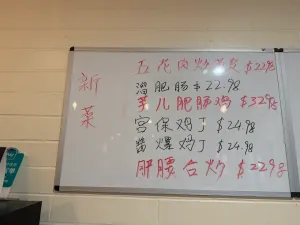 新菜
五花肉炒蛋皮 $22.98
溜肥肠 $22.98
芋儿肥肠鸡 $32.98
宫保鸡丁 $24.98
酱爆鸡丁 $24.98
肝腰合炒 $22.98